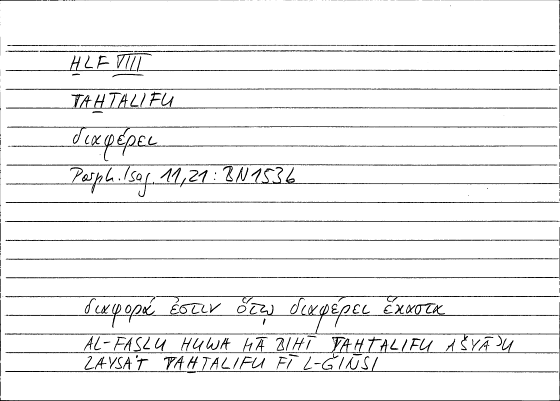 ḪLF VIII
TAḪTALIFU
διαφέρει
Porph. Isag. 11,21 : BN153b
διαφορά ἐστιν ὅτῳ διαφέρει ἕκαστα
AL-FAṢLU HUWA MĀ BIHĪ TAḪTALIFU AŠYĀʾU
LAYSAT TAḪTALIFU FĪ L-ǦINSI